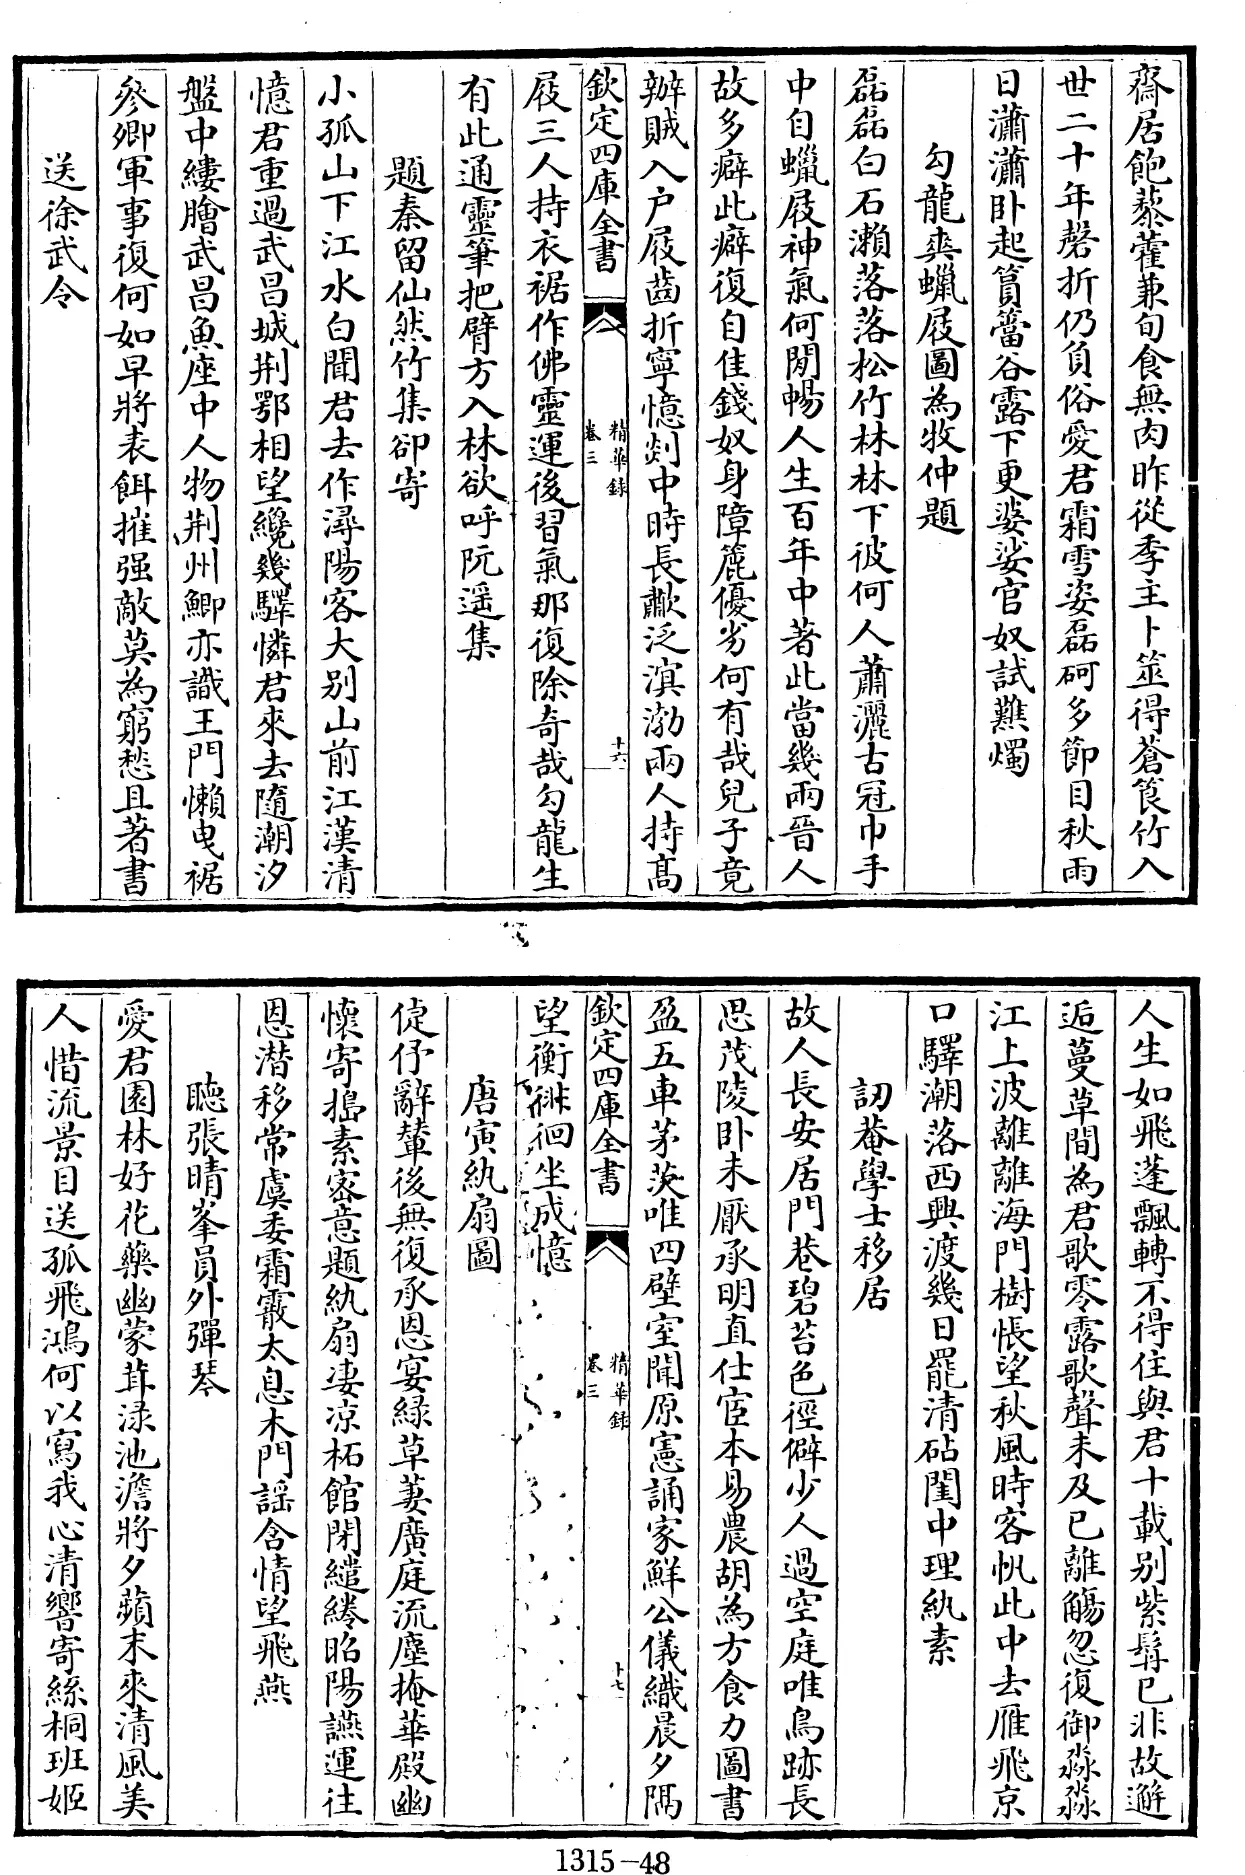 齋居飽藜藿兼旬食無肉昨從季主卜筮得蒼筤竹入
世二十年磬折仍負俗愛君霜雪姿磊砢多節目秋雨
日瀟瀟卧起篔簹谷露下更婆娑官奴試爇燭
勾龍爽蠟屐圖為牧仲題
磊磊白石瀨落落松竹林林下彼何人蕭灑古冠巾手
中自蠟屐神氣何閒暢人生百年中著此當幾兩晉人
故多癖此癖復自佳錢奴身障簏優劣何有哉兒子竟
辦賊入户屐齒折寧憶剡中時長歗泛溟渤兩人持髙
欽定四庫全書
精華錄
卷三
十六
屐三人持衣裾作佛靈運後習氣那復除奇哉勾龍生
有此通靈筆把臂方入林欲呼阮遥集
題秦留仙然竹集卻寄
小孤山下江水白聞君去作潯陽客大别山前江漢清
憶君重過武昌城荆鄂相望纔幾驛憐君來去隨潮汐
盤中縷膾武昌魚座中人物荆州鯽亦識王門懶曳裾
參卿軍事復何如早將表餌摧强敵莫為窮愁且著書
送徐武令
人生如飛蓬飄轉不得住與君十載别紫髯已非故邂
逅蔓草間為君歌零露歌聲未及已離觴忽復御淼淼
江上波離離海門樹悵望秋風時客帆此中去雁飛京
口驛潮落西興渡幾日罷清砧閨中理紈素
訒菴學士移居
故人長安居門巷碧苔色徑僻少人過空庭唯鳥跡長
思茂陵卧未厭承明直仕宦本易農胡為方食力圖書
盈五車茅茨唯四壁室聞原憲誦家鮮公儀織晨夕隅
欽定四庫全書
精華錄
卷三
十七
望衡徘徊坐成憶
唐寅紈扇圖
倢伃辭輦後無復承恩宴緑草萋廣庭流塵掩華殿幽
懷寄搗素密意題紈扇凄凉柘館閉繾綣昭陽讌運往
恩潛移常虞委霜霰太息木門謡含情望飛燕
聽張晴峯員外彈琴
愛君園林好花藥幽蒙茸渌池澹將夕蘋末來清風美
人惜流景目送孤飛鴻何以寫我心清響寄絲桐班姬
1315-48